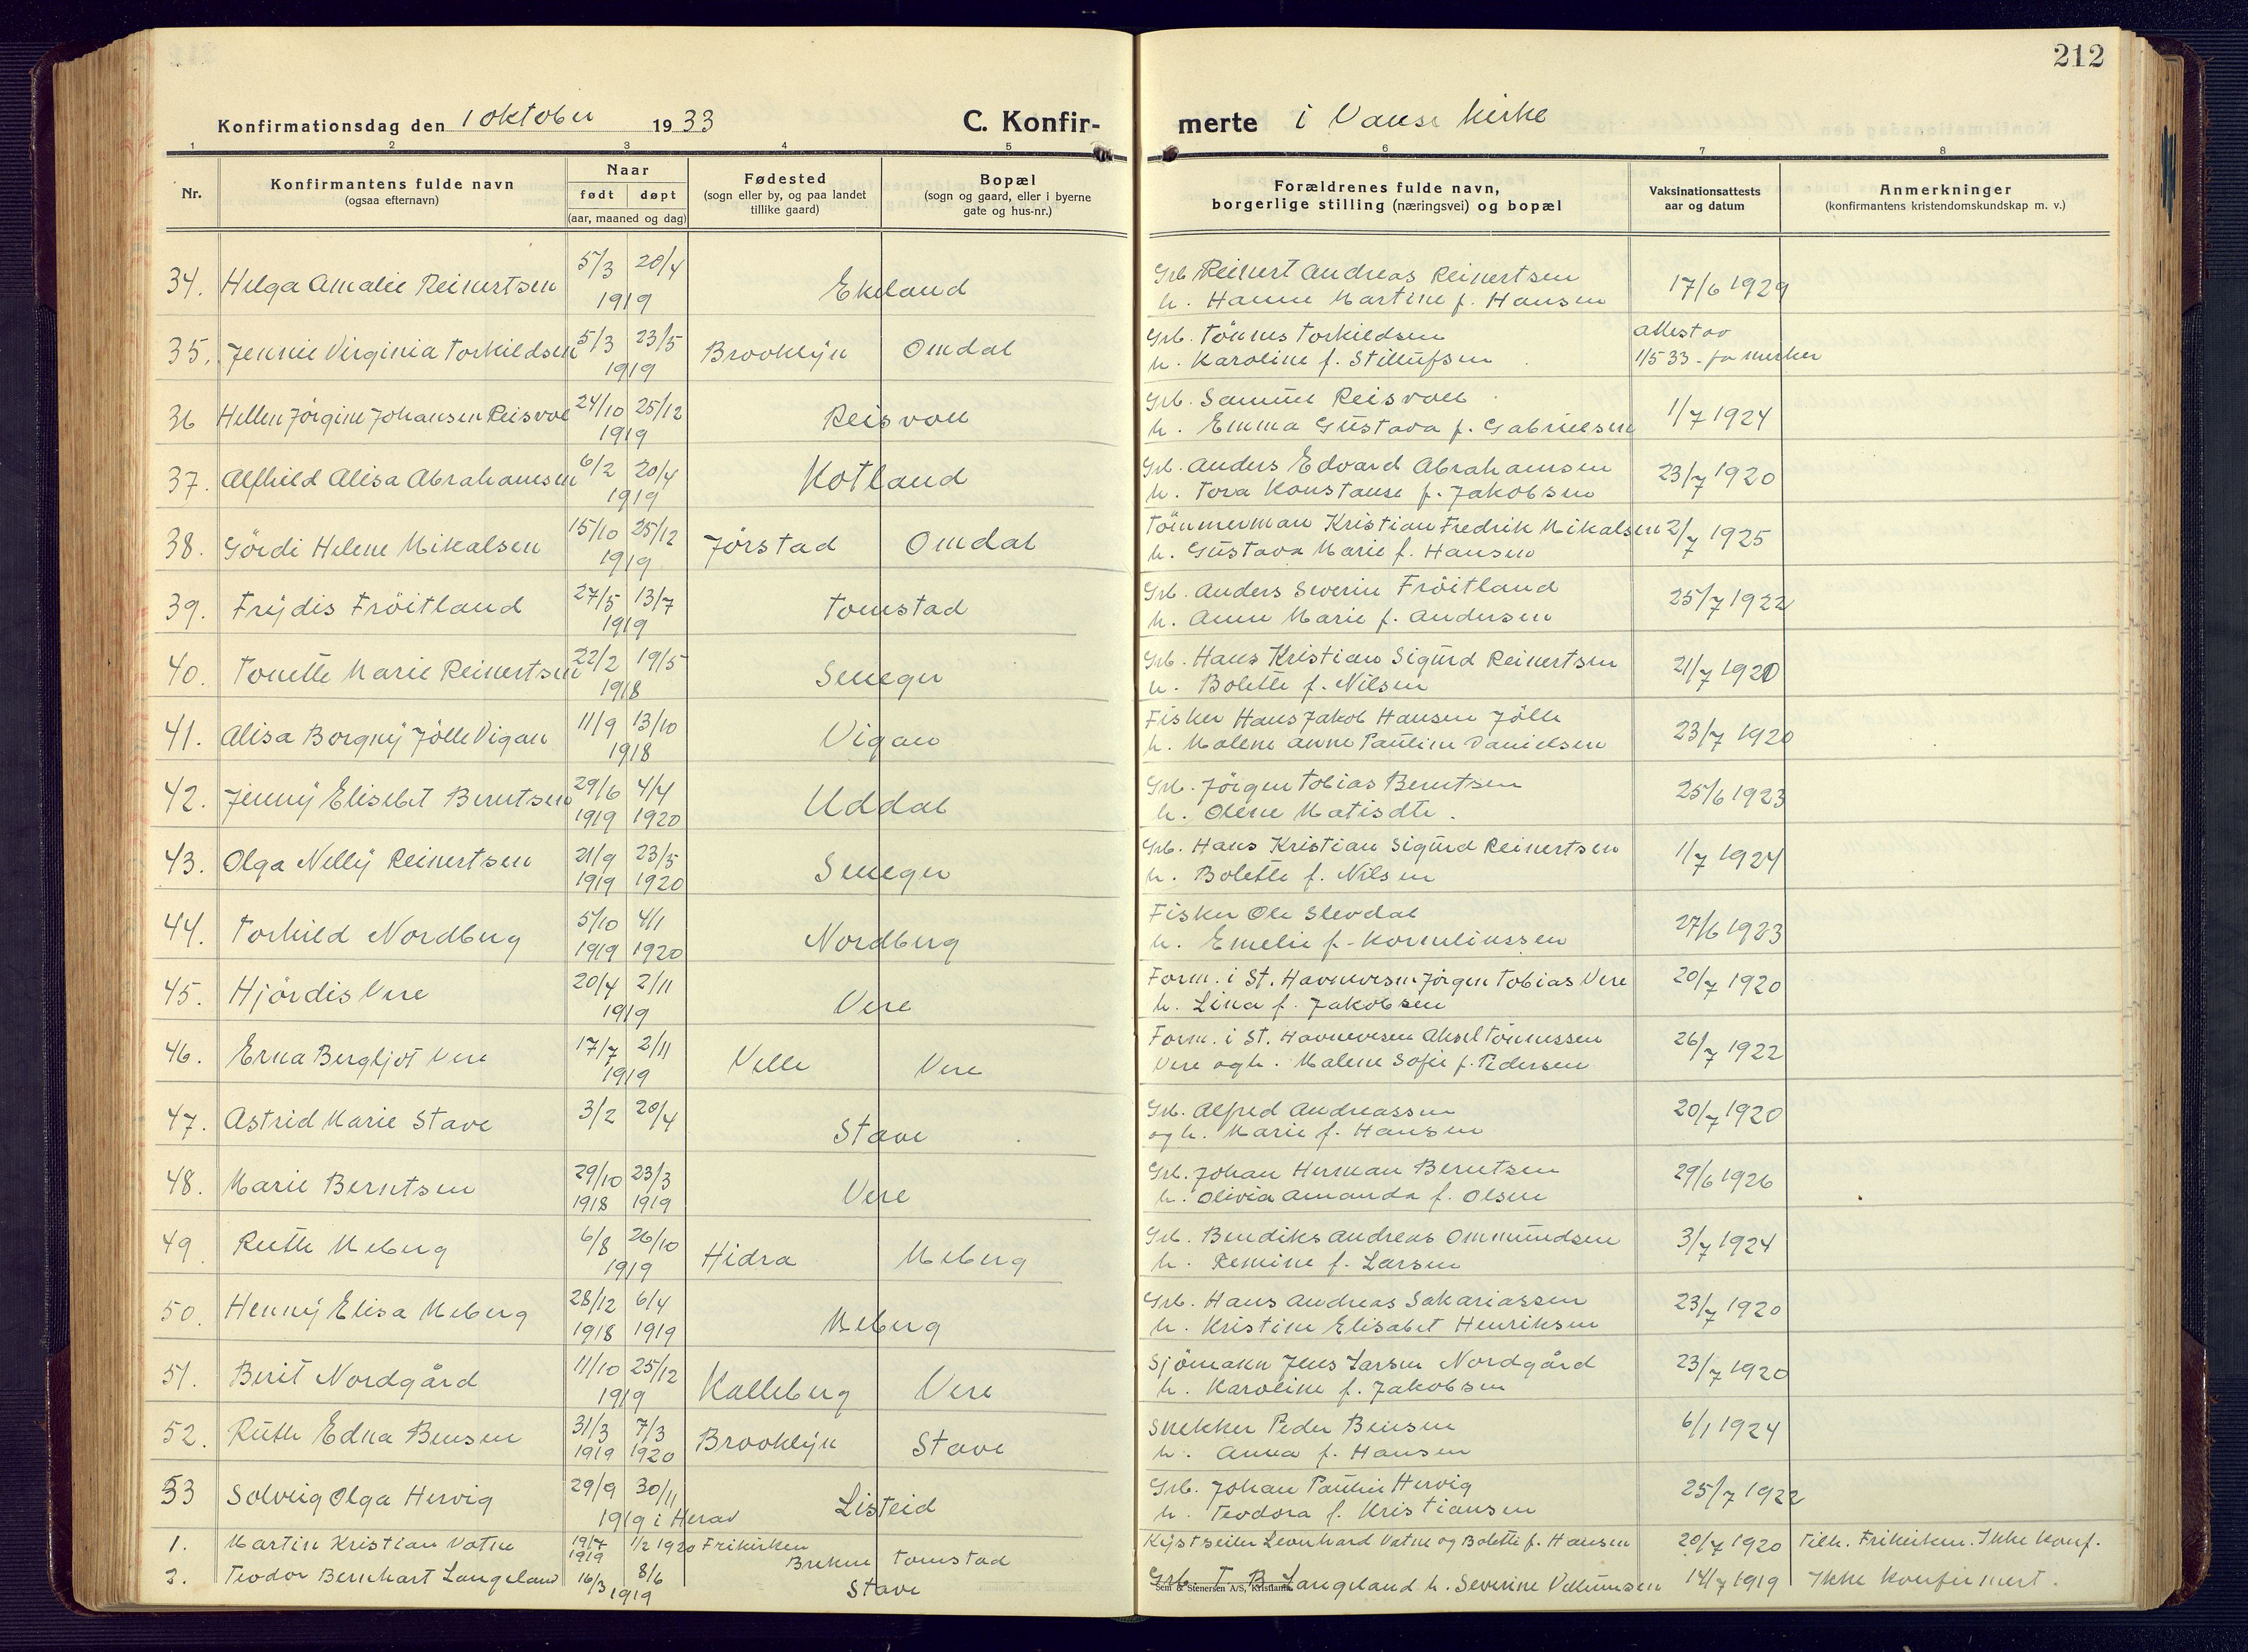 212
Konfirmationsdag den 1 oktober 1933 C. Konfir-
merte i Vanse kirke
1 2 3 4 5 6 7 8
Nr.
Konfirmantens fulde navn
(ogsaa efternavn)
Naar
født døpt
(aar, maaned og dag)
Fødested
(sogn eller by, og paa landet
tillike gaard)
Bopæl
(sogn og gaard, eller i byerne
gate og hus-nr.)
Forældrenes fulde navn,
borgerlige stilling (næringsvei) og bopæl
Vaksinationsattests
aar og datum
Anmerkninger
(konfirmantens kristendomskundskap m. v.)
34. Helga Amalie Reinertsen 5/3 20/4 1919 Ekeland
Grb Reinert Andreas Reinertsen 17/6 1929
h. Hanne Martine f. Hansen
35. Jennie Virginia Torkildsen 5/3 23/5 1919 Brooklÿn Omdal
Grb. Tönnes Torkildsen attest av
h. Karoline f. Stillufsen 1/5 33 - for merker
36 Hellen Jörgine Johansen Reisvoll 24/10 25/12 1919 Reisvoll
Grb. Samuel Reisvoll 1/7 1924
h. Emma Gustava f. Gabrielsen
37. Alfhild Alisa Abrahamsen 6/2 20/4 1919 Kotland
Grb. Anders Edvard Abrahamsen 23/7 1920
h. Tora Konstanse f. Jakobsen
38. Gördi Helene Mikalsen 15/10 25/12 1919 Jörstad Omdal
Tömmerman Kristian Fredrik Mikalsen 2/7 1925
h. Gustava Marie f. Hansen
39. Frÿdis Fröitland 27/5 13/7 1919 Tomstad
Grb. Anders Severin Fröitland 25/7 1922
h. Anne Marie f. Andersen
40. Tonette Marie Reinertsen 22/2 19/5 1918 Seneger
Grb. Hans Kristian Sigurd Reinertsen 21/7 1920
h. Bolette f. Nilsen
41. Alisa Borgnÿ Jölle Vigan 11/9 13/10 1918 Vigan
Fisker Hans Jakob Hansen Jölle 23/7 1920
h. Malene Anne Pauline Danielsen
42. Jennÿ Elisebet Berntsen 29/6 1919 4/4 1920 Uddal
Grb. Jörgen Tobias Berntsen 25/6 1923
h. Olene Matisdtr.
43. Olga Nellÿ Reinertsen 21/9 1919 23/5 1920 Seneger
Grb. Hans Kristian Sigurd Reinertsen 1/7 1924
h. Bolette f. Nilsen
44. Torhild Nordberg 5/10 1919 4/1 1920 Nordberg
Fisker Ole Slevdal 27/6 1923
h. Emelie f. Korneliussen
45. Hjördis Vere 20/4 2/11 1919 Vere
Form. i St. Havnevesn Jörgen Tobias Vere 20/7 1920
h. Lina f. Jakobsen
46. Erna Bergljot Vere 17/7 2/11 1919 Velle Vere
Form. i St. Havnevesen Aksel Tönnessen 26/7 1922
Vere og h. Malene Sofie f. Pedersen
47. Astrid Marie Stave 3/2 20/4 Stave
Grb. Alfred Andreassen 20/7 1920
og h. Marie f. Hansen
48. Marie Berntsen 29/10 1918 23/3 1919 Vere
Grb. Johan Herman Berntsen 29/6 1926
h. Olivia Amanda f. Olsen
49 Ruth Meberg 6/8 26/10 1919 Hidra Meberg
Grb. Bendiks Andreas Ommundsen 3/7 1924
h. Remine f. Larsen
50. Hennÿ Elisa Meberg 28/12 1918 6/4 1919 Meberg
Grb. Hans Andreas Sakariassen 23/7 1920
h. Kristine Elisabet Henriksen
51. Berit Nordgård 11/10 25/12 1919 Kalleberg Vere
Sjömann Jens Larsen Nordgård 23/7 1920
h. Karoline f. Jakobsen
52. Ruth Edna Bensen 31/3 1919 7/3 1920 Brooklÿn Stave
Snekker Peder Bensen 6/1 1924
h. Anna f. Hansen
53 Solveig Olga Hervig 29/9 30/11 1919 i Herad Listeid
Grb. Johan Paulin Hervig 25/7 1922
h. Teodora f. Kristiansen
1. Martin Kristian Vatne 19/7 1919 1/2 1920 Frikirken Brekne Tomstad
Kÿstseiler Leonhard Vatne og Bolette f. Hansen 20/7 1920 Tilh. Frikirken. Ikke konf.
2. Teodor Bernhart Langeland 16/3 8/6 1919 Stave
Grb. T. B. Langeland h. Severine Vellumsen 14/7 1919 Ikke konfirmert.
Sem & Stenersen A/S, Kristiania